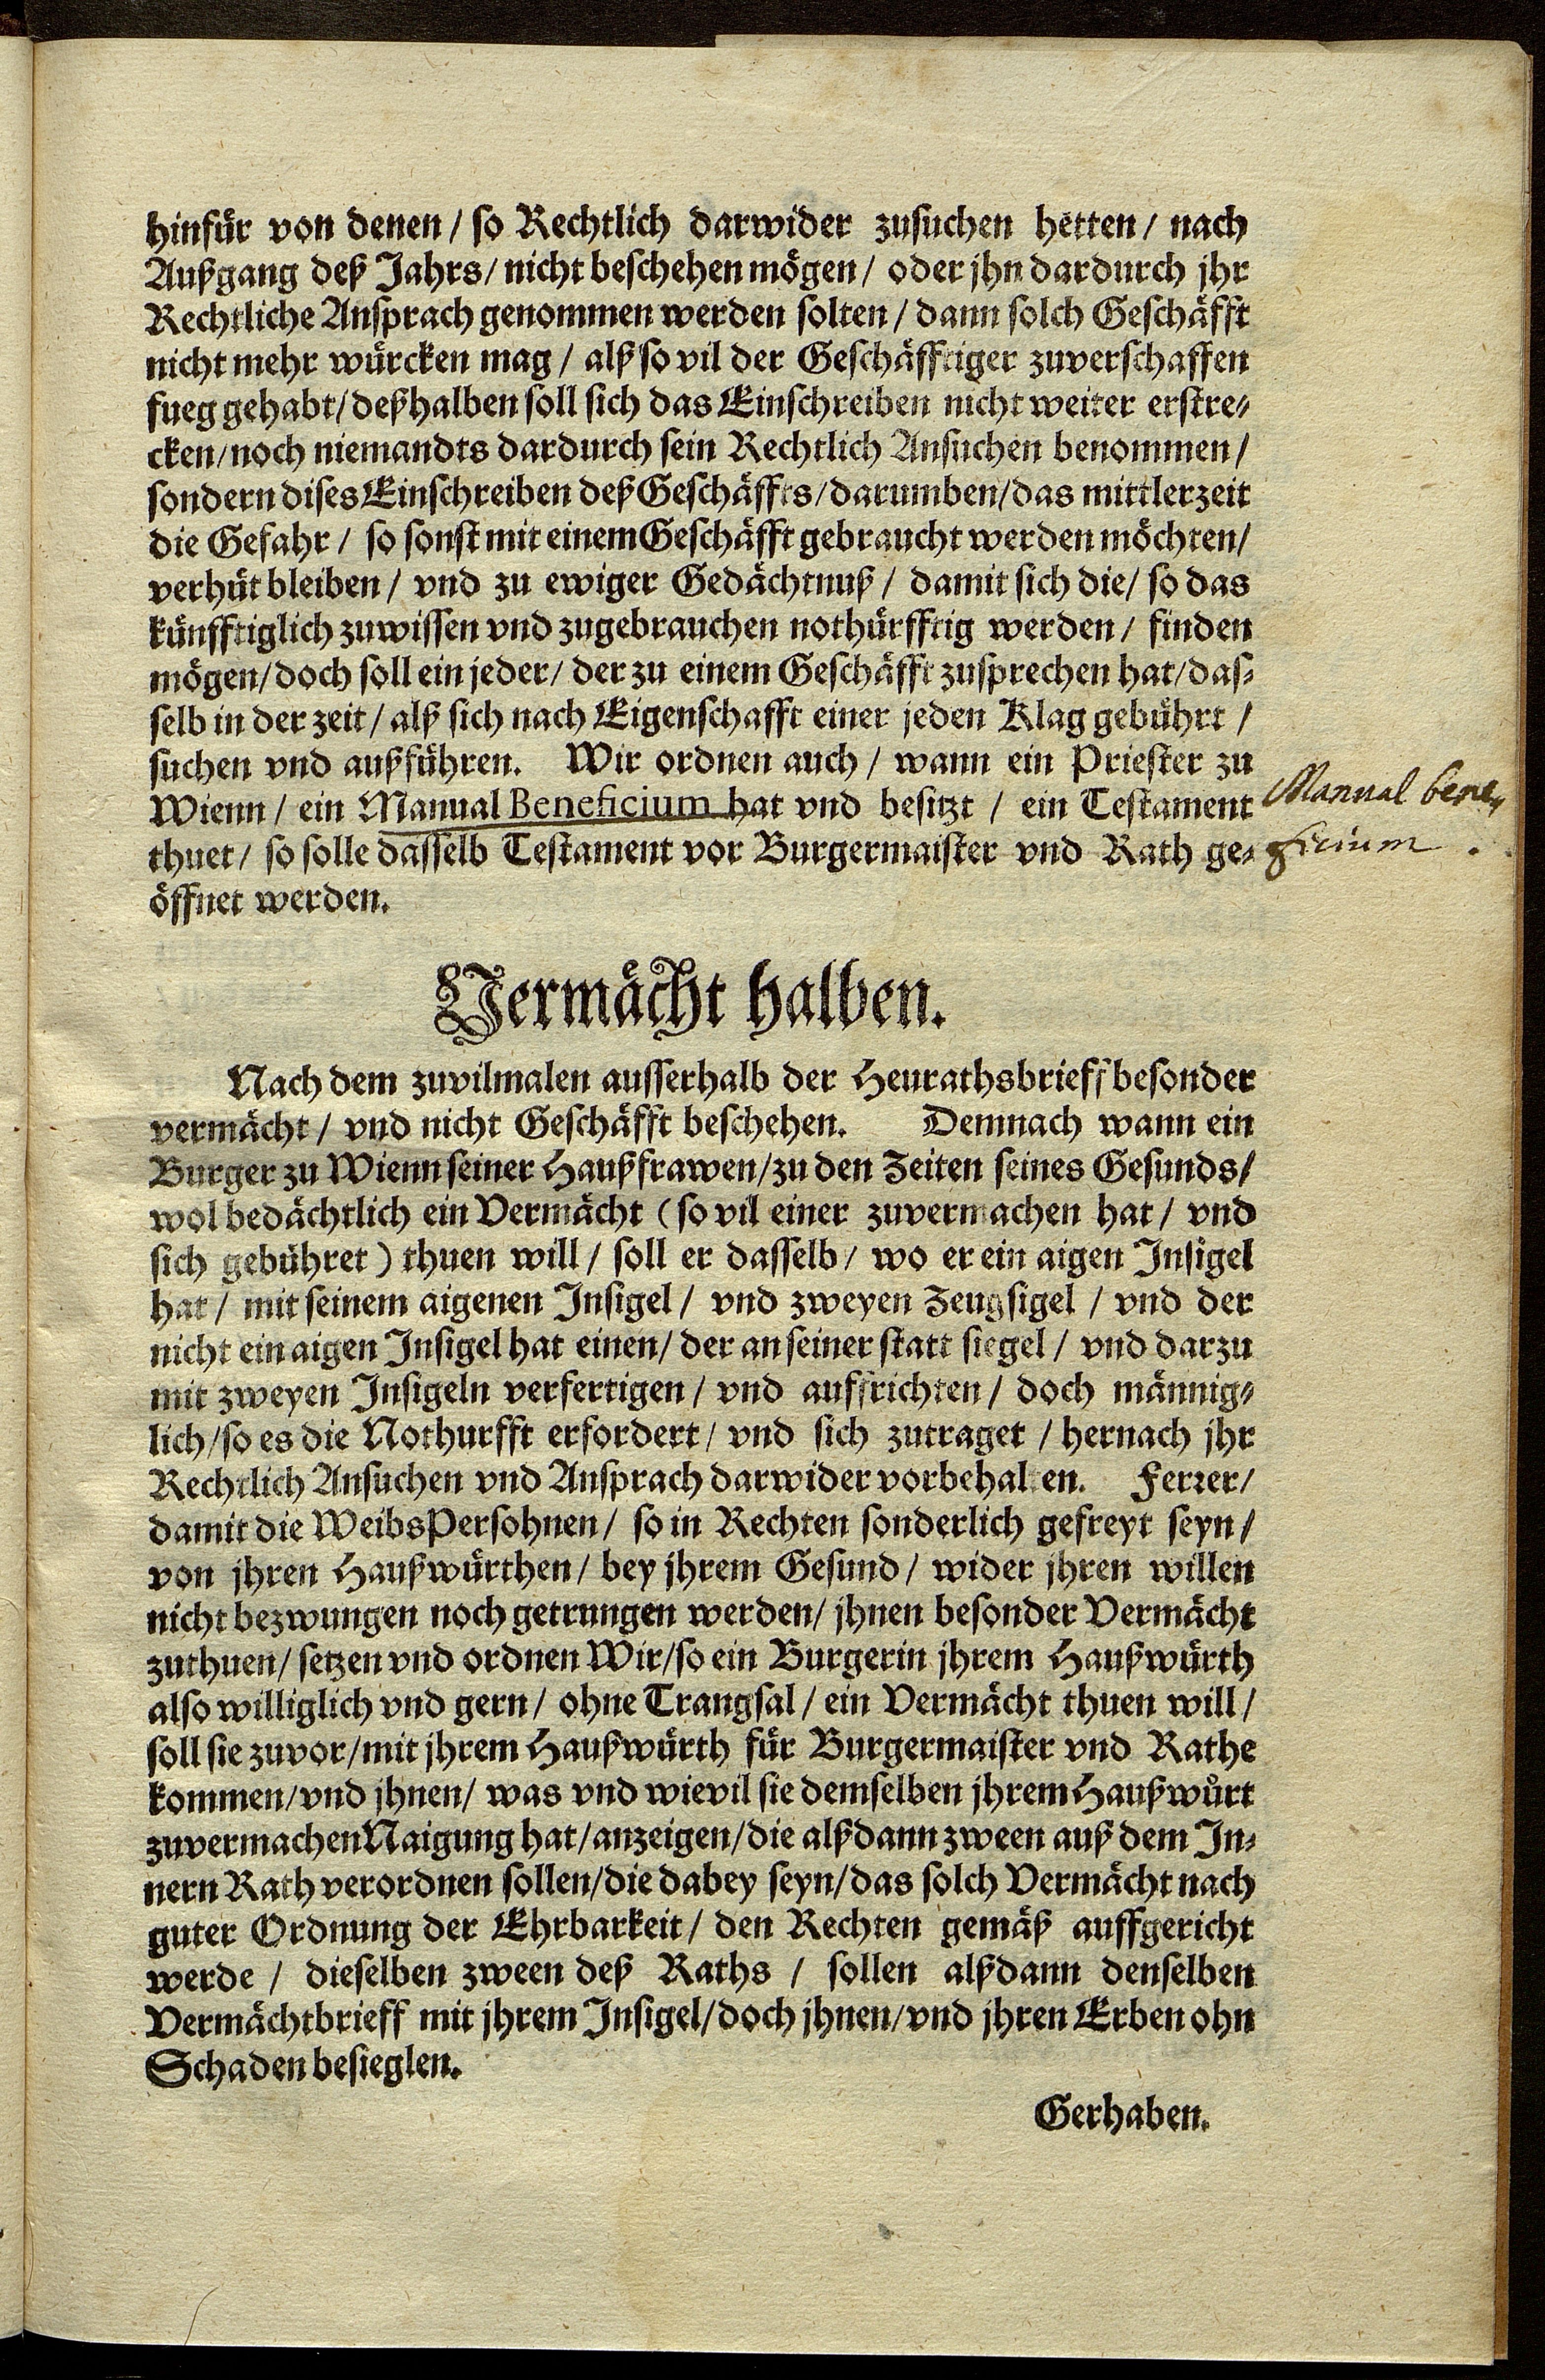 hinfür von denen / so Rechtlich darwider zusuchen hetten / nach
Außgang deß Jahrs / nicht beschehen mögen / oder jhn dardurch jhr
Rechtliche Ansprach genommen werden solten / dann solch Geschäfft
nicht mehr würcken mag / alß so vil der Geschäfftiger zuverschaffen
fueg gehabt / deßhalben soll sich das Einschreiben nicht weiter erstre-
cken / noch niemandts dardurch sein Rechtlich Ansuchen benommen /
sondern dises Einschreiben deß Geschäffts / darumben / das mittlerzeit
die Gefahr / so sonst mit einem Geschäfft gebraucht werden möchten /
verhüt bleiben / vnd zu ewiger Gedächtnuß / damit sich die / so das
künfftiglich zuwissen vnd zugebrauchen nothürfftig werden / finden
mögen / doch soll ein jeder / der zu einem Geschäfft zusprechen hat / das-
selb in der zeit / alß sich nach Eigenschafft einer jeden Klag gebührt /
suchen vnd außführen. Wir ordnen auch / wann ein Priester zu
Wienn / ein Manual Beneficium hat vnd besitzt / ein Testament
thuet / so solle dasselb Testament vor Burgermaister vnd Rath ge-
öffnet werden.
Manual bene-
ficium.
Vermächt halben.
Nach dem zuvilmalen ausserhalb der Heurathsbrieff besonder
vermächt / vnd nicht Geschäfft beschehen. Demnach wann ein
Burger zu Wienn seiner Haußfrawen / zu den Zeiten seines Gesunds /
wol bedächtlich ein Vermächt (so vil einer zuvermachen hat / vnd
sich gebühret) thuen will / soll er dasselb / wo er ein aigen Insigel
hat / mit seinem aigenen Insigel / vnd zweyen Zeugsigel / vnd der
nicht ein aigen Insigel hat einen / der an seiner statt siegel / vnd darzu
mit zweyen Insigeln verfertigen / vnd auffrichten / doch männig-
lich / so es die Nothurfft erfordert / vnd sich zutraget / hernach jhr
Rechtlich Ansuchen vnd Ansprach darwider vorbehalten. Ferrer /
damit die WeibsPersohnen / so in Rechten sonderlich gefreyt seyn /
von jhren Haußwürthen / bey jhrem Gesund / wider jhren willen
nicht bezwungen noch getrungen werden / jhnen besonder Vermächt
zuthuen / setzen vnd ordnen Wir / so ein Burgerin jhrem Haußwürth
also williglich vnd gern / ohne Trangsal / ein Vermächt thuen will /
soll sie zuvor / mit jhrem Haußwürth für Burgermaister vnd Rathe
kommen / vnd jhnen / was vnd wievil sie demselben jhrem Haußwürt
zuvermachen Naigung hat / anzeigen / die alßdann zween auß dem In-
nern Rath verordnen sollen / die dabey seyn / das solch Vermächt nach
guter Ordnung der Ehrbarkeit / den Rechten gemäß auffgericht
werde / dieselben zween deß Raths / sollen alßdann denselben
Vermächtbrieff mit jhrem Insigel / doch jhnen / vnd jhren Erben ohn
Schaden besieglen.
Gerhaben.